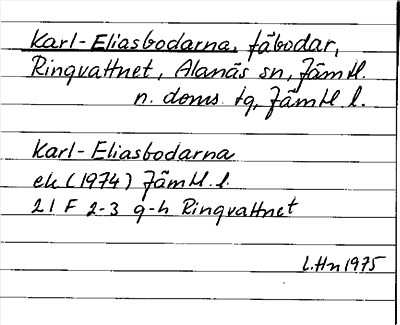 Karl-Eliasbodarna, fäbodar,
Ringvattnet, Alanäs sn, Jämtl.
n. doms. tg, Jämtl. l.
Karl-Eliasbodarna
ek (1974) Jämtl. l.
21 F 2-3 g-h Ringvattnet
L.Hn 1975